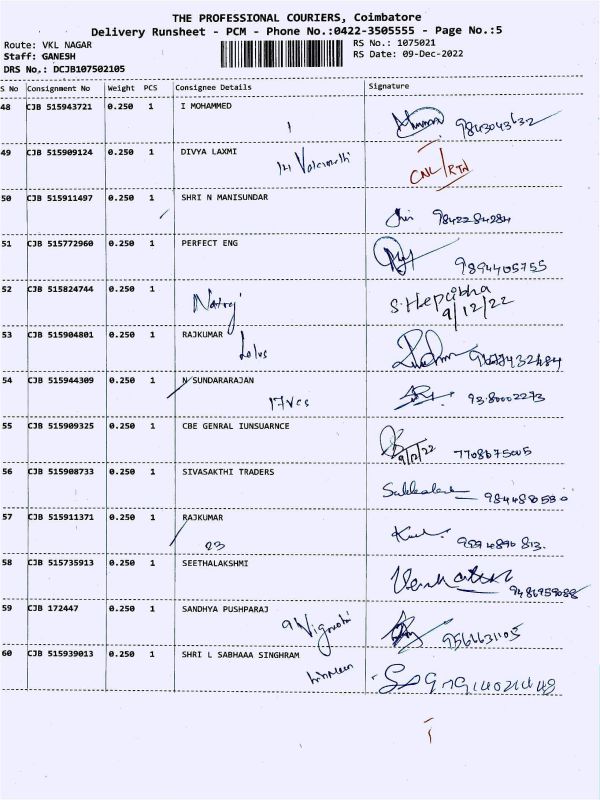 THE PROFESSIONAL COURIERS, Coimbatore
Delivery Runsheet - PCM - Phone No.:0422-3505555 - Page No.:5
Route: VKL NAGAR RS No.: 1075021
Staff: GANESH RS Date: 09-Dec-2022
DRS No.: DCJB107502105
S No Consignment No Weight PCS Consignee Details Signature
48 CJB 515943721 0.250 1 I MOHAMMED
9843043632
49 CJB 515909124 0.250 1 DIVYA LAXMI
CNL/RTN
50 CJB 515911497 0.250 1 SHRI N MANISUNDAR
9842284284
51 CJB 515772960 0.250 1 PERFECT ENG
9894405755
52 CJB 515824744 0.250 1
Natraj
9/12/22
53 CJB 515904801 0.250 1 RAJKUMAR
Lotus
54 CJB 515944309 0.250 1 N SUNDARARAJAN
93.80002273
55 CJB 515909325 0.250 1 CBE GENRAL IUNSUARNCE
9/12/22 7708675005
56 CJB 515908733 0.250 1 SIVASAKTHI TRADERS
57 CJB 515911371 0.250 1 RAJKUMAR
23
58 CJB 515735913 0.250 1 SEETHALAKSHMI
59 CJB 172447 0.250 1 SANDHYA PUSHPARAJ
60 CJB 515939013 0.250 1 SHRI L SABHAAA SINGHRAM